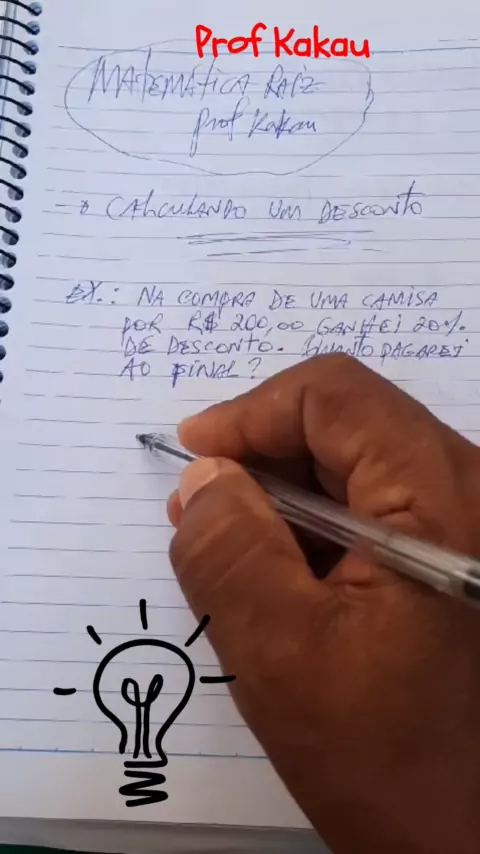 Prof Kakau
MATEMÁTICA RAIZ
Prof Kakau
→ CALCULANDO UM DESCONTO
EX.: NA COMPRA DE UMA CAMISA
POR R$ 200,00 GANHEI 20%
DE DESCONTO. QUANTO PAGAREI
AO FINAL?